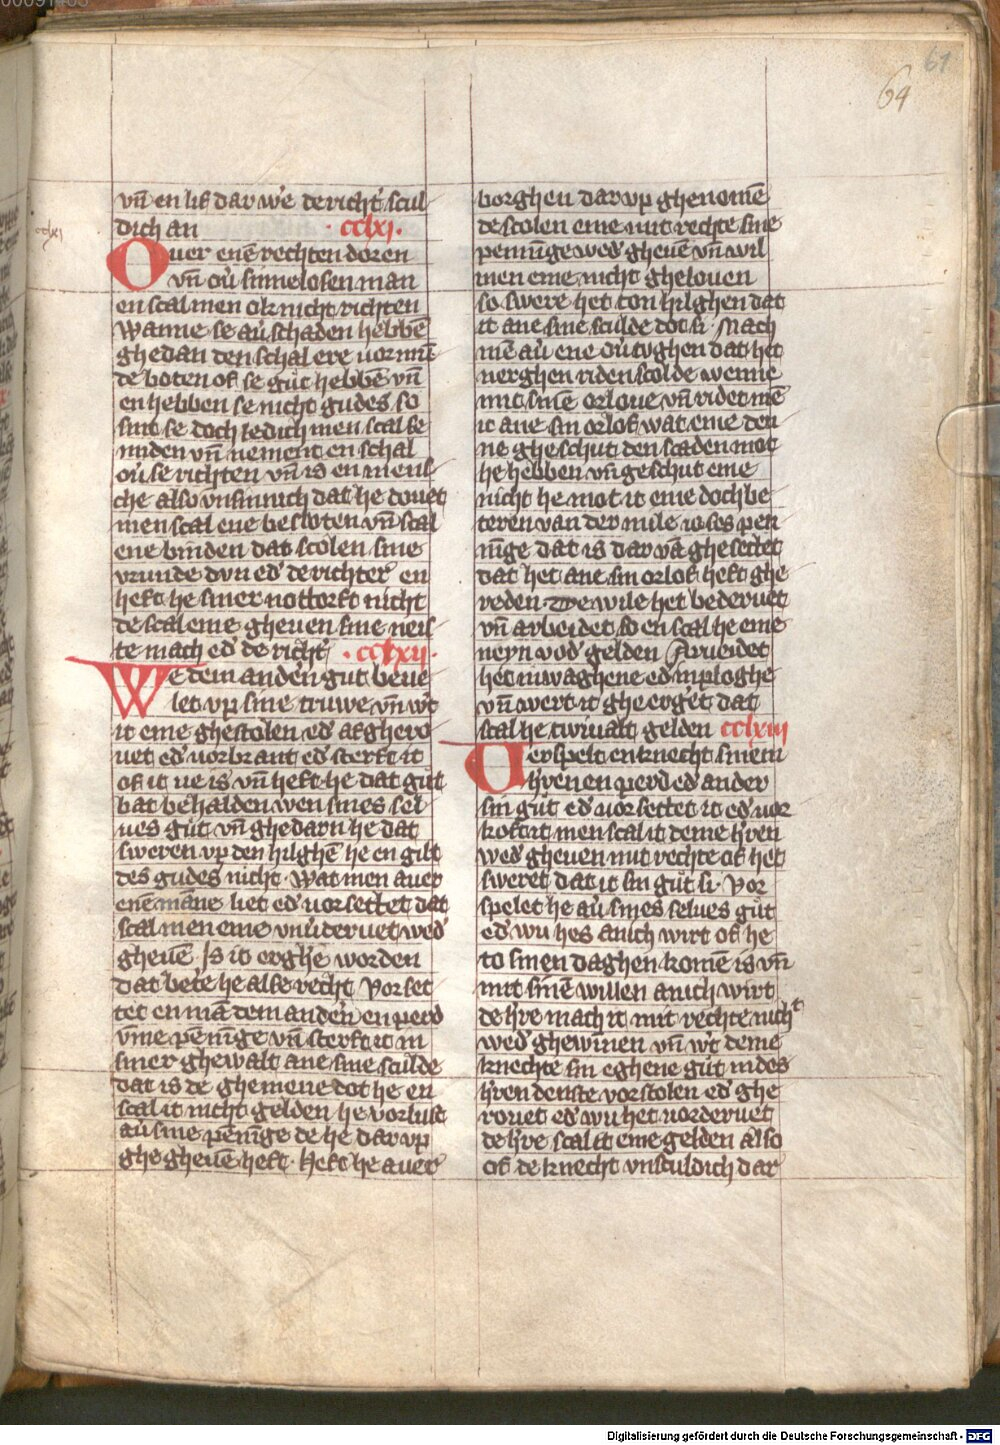 00091403
61
64
cclxi
vn̄ en lif dar we de richt scul
dich an · cclxi·
Ouer enē rechten doren
vn̄ ou̓ sinnelosen man
en scal men ok nicht richten
wanne se au̓ schaden hebbē
ghedan den schal ere vormū
de boten of se gut hebbē vn̄
en hebben se nicht gudes so
sint se doch ledich men scal se
vn̄ nement en schal
ou̓ se richten vn̄ is en mens
che also vnsinnich dat he douet
men scal ene besloten vn̄ scal
ene binden dat scolen sine
vrunde dvn ed̓ de richter en
heft he siner nottorft nicht
de scal eme gheuen sine neis
te mach ed̓ de richt̓ · cclxii·
We dem anden̓ gut beue
let vp sine truwe vn̄ wt̓
it eme ghestolen ed̓ afghero
uet ed̓ vorbrant ed̓ sterft it
of it ve is vn̄ heft he dat gut
bat behalden wen sines sel
ues gut vn̄ ghedarn he dat
sweren vp den hilghē he en gilt
des gudes nicht wat men auer
enē māne liet ed̓ vor settet dat
scal men eme vnu̓deruet wed̓
gheuē Is it erghe worden
dat bete he alse recht Vorset
tet en mā dem anden̓ en perd
vm̄e pēnīge vn̄ sterft it in
siner ghewalt ane sine sculde
dat is de ghemene dot he en
scal it nicht gelden he vorlust
au̓ sine pēnīge de he dar vp
ghegheuē heft· Heft he auer
borghen dar vp ghenomē
de scolen eme mit rechte sine
pennīge wed̓ gheuē vn̄ wil
men eme nicht ghelouen
so swere het ton hilghen dat
it ane sine sculde dot si· Mach
mē au̓ ene ou̓tvghen dat het
nerghen riden scolde wenne
mit sinē orloue vn̄ ridet mē
it ane sin orlof wat eme den
ne gheschut den scaden mot
he hebben vn̄ geschut eme
nicht he mot it eme doch be
teren van der mile io ses pen
nīge dat is dar vā ghesettet
dat het ane sin orlof heft ghe
reden· De wile het bederuet
vn̄ arbeidet so en scal he eme
neyn vod̓ gelden Arueidet
het in waghene ed̓ in ploghe
vn̄ wert it gheerget dat
scal he twiualt gelden cclxiii
Verspelt en knecht sinem
h̓ren en perd ed̓ ander
sin gut ed̓ vor settet it ed̓ vor
koft it men scal it deme h̓ren
wed̓ gheuen mit rechte of het
sweret dat it sin gut si· Vor
spelet he au̓ sines selues gut
ed̓ wu hes anich wirt of he
to sinen daghen komē is vn̄
mit sinē willen anich wirt
de h̓re mach it mit rechte nicht
wed̓ ghewinen vn̄ wt̓ deme
knechte sin eghene gut in des
h̓ren denste vorstolen ed̓ ghe
rouet ed̓ wu het vorderuet
de h̓re scal it eme gelden also
of de knecht vnsculdich dar
Digitalisierung gefördert durch die Deutsche Forschungsgemeinschaft - DFG